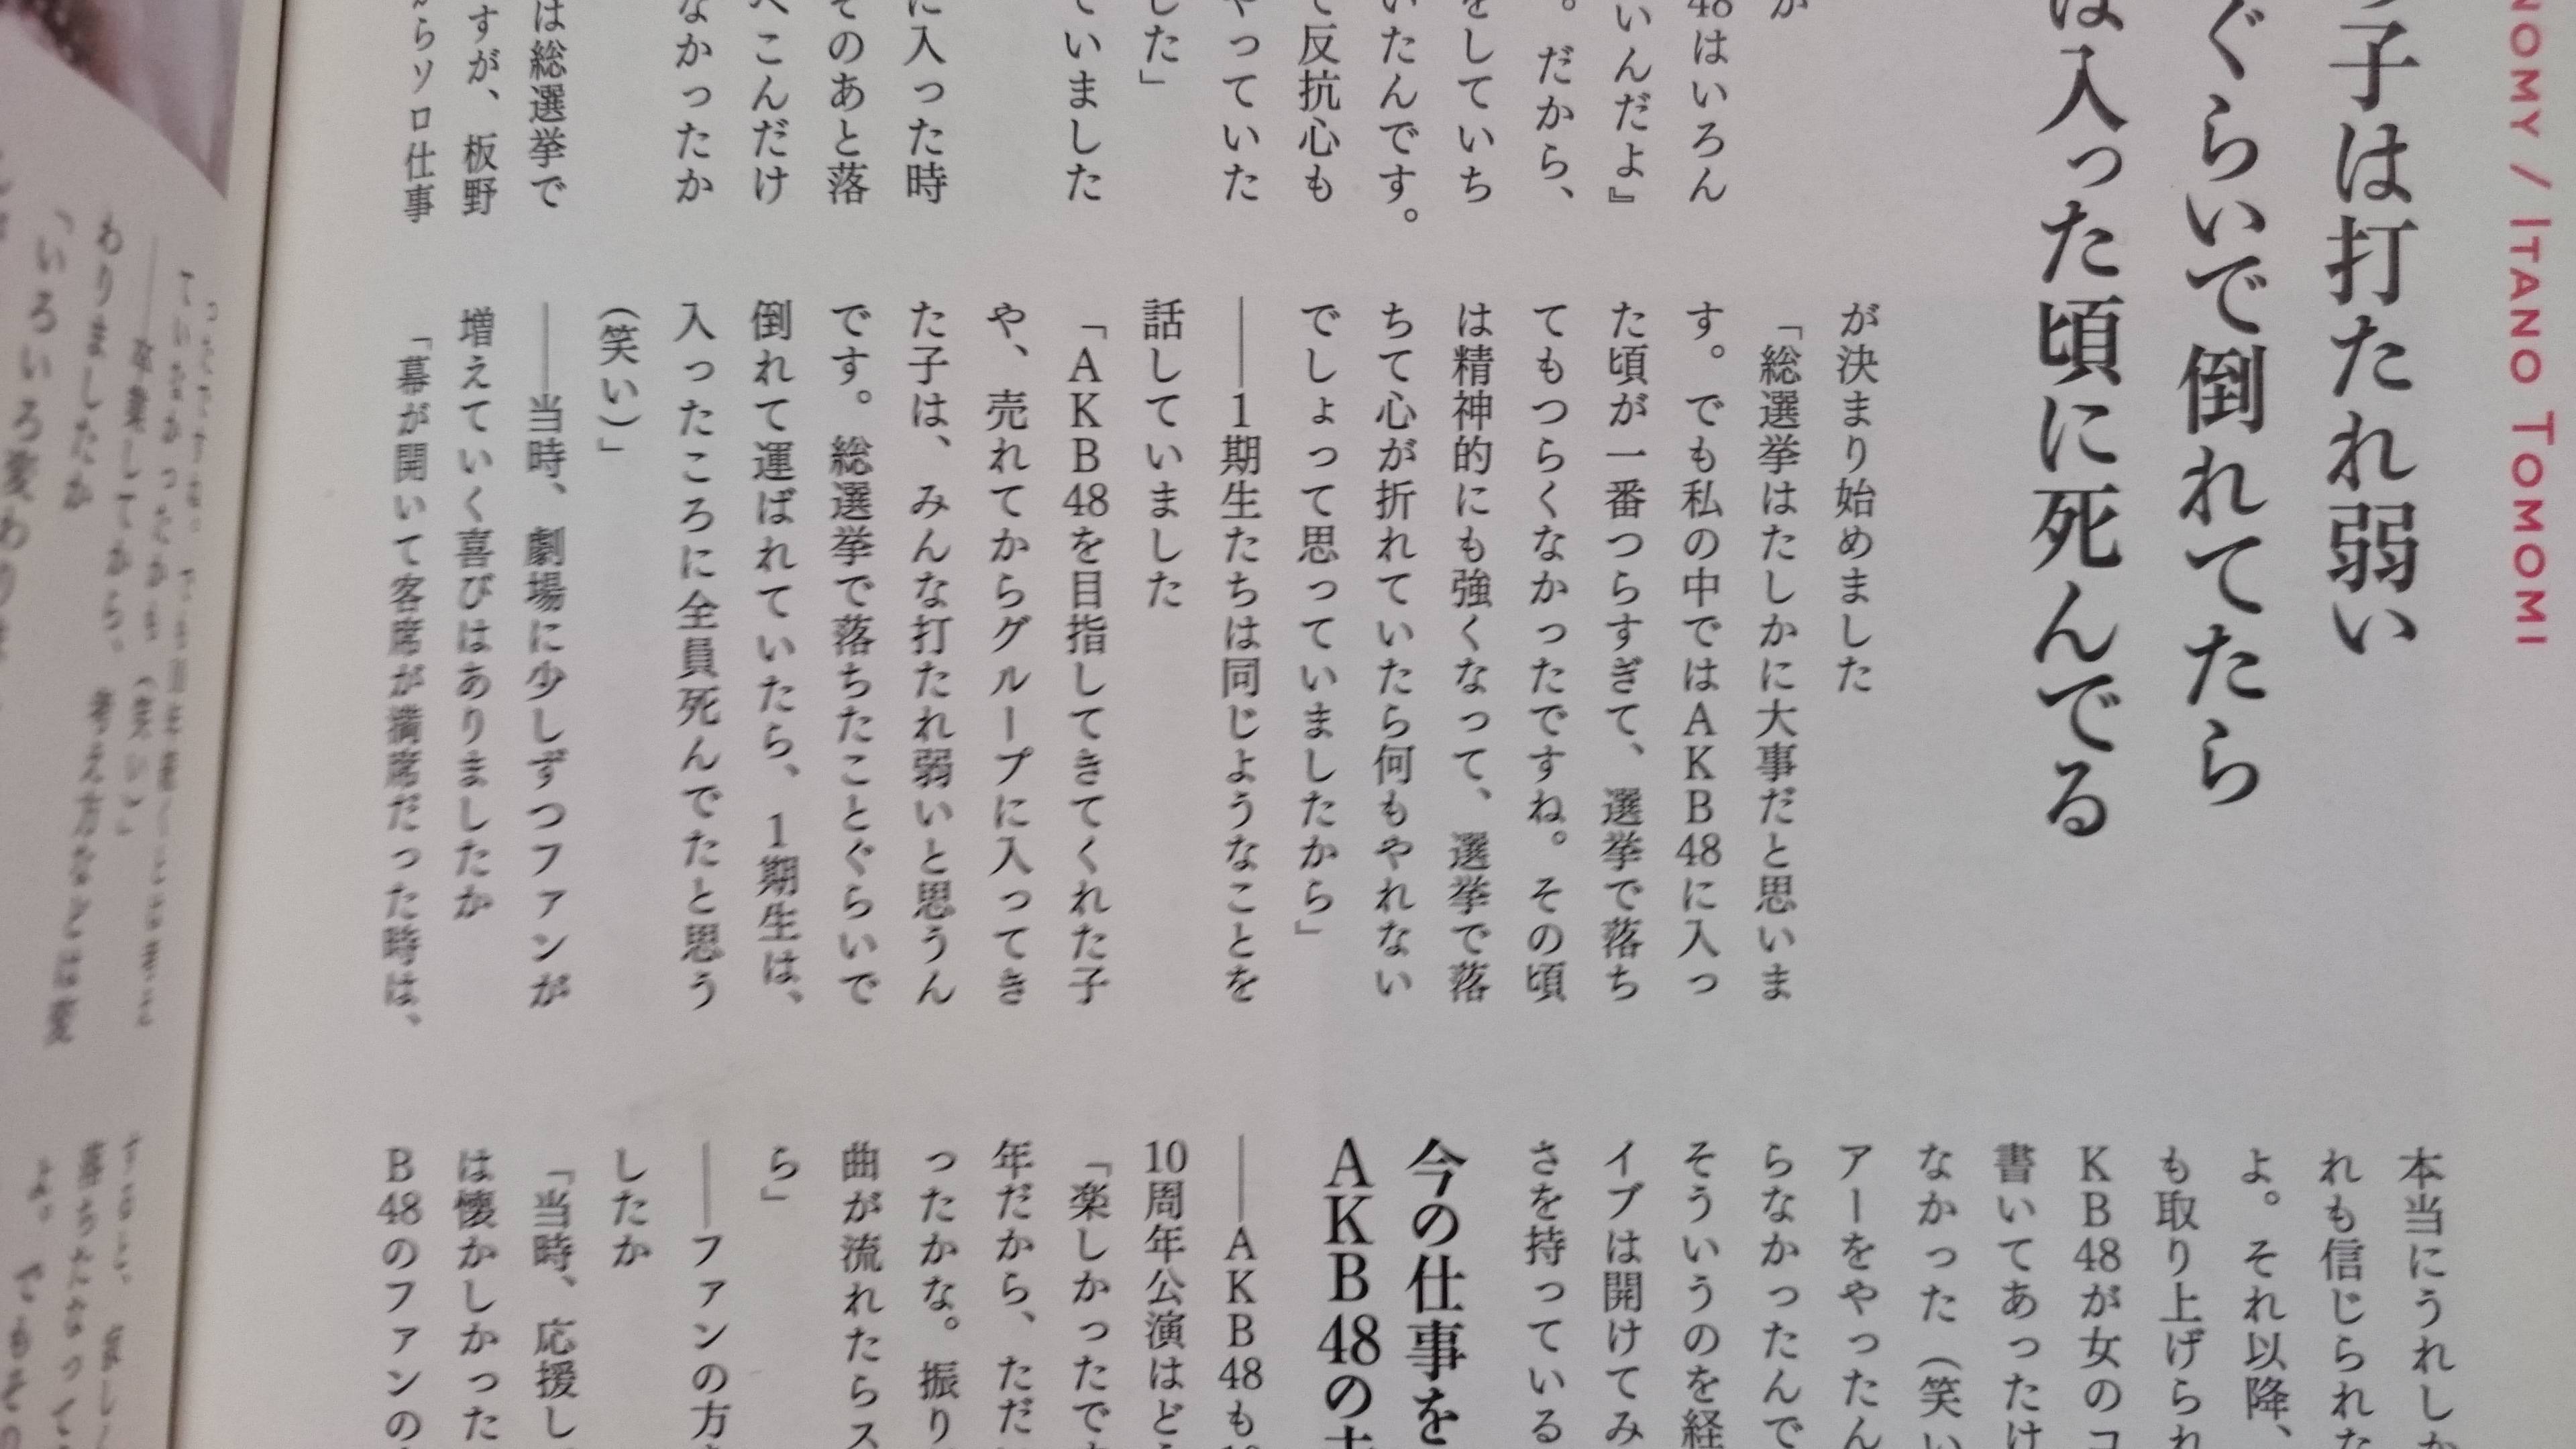 NOMY / ITANO TOMOMI
子は打たれ弱い
ぐらいで倒れてたら
は入った頃に死んでる
が
48はいろん
いんだよ』
。だから、
をしていち
いたんです。
て反抗心も
やっていた
した」
ていました
に入った時
そのあと落
へこんだけ
なかったか
は総選挙で
すが、板野
からソロ仕事
が決まり始めました
「総選挙はたしかに大事だと思いま
す。でも私の中ではAKB48に入っ
た頃が一番つらすぎて、選挙で落ち
てもつらくなかったですね。その頃
は精神的にも強くなって、選挙で落
ちて心が折れていたら何もやれない
でしょって思っていましたから」
――1期生たちは同じようなことを
話していました
「AKB48を目指してきてくれた子
や、売れてからグループに入ってき
た子は、みんな打たれ弱いと思うん
です。総選挙で落ちたことぐらいで
倒れて運ばれていたら、1期生は、
入ったころに全員死んでたと思う
(笑い)」
――当時、劇場に少しずつファンが
増えていく喜びはありましたか
「幕が開いて客席が満席だった時は、
本当にうれし
れも信じられ
よ。それ以降、
も取り上げられ
KB48が女の
書いてあったけ
なかった(笑い
アーをやったん
らなかったんで
そういうのを経
イブは開けてみ
さを持っている
今の仕事を
AKB48の
――AKB48も
10周年公演はど
「楽しかったで
年だから、ただ
ったかな。振り
曲が流れたらス
ら」
――ファンの方
したか
「当時、応援し
は懐かしかった
B48のファンの
わりましたか
「いろいろ変わ